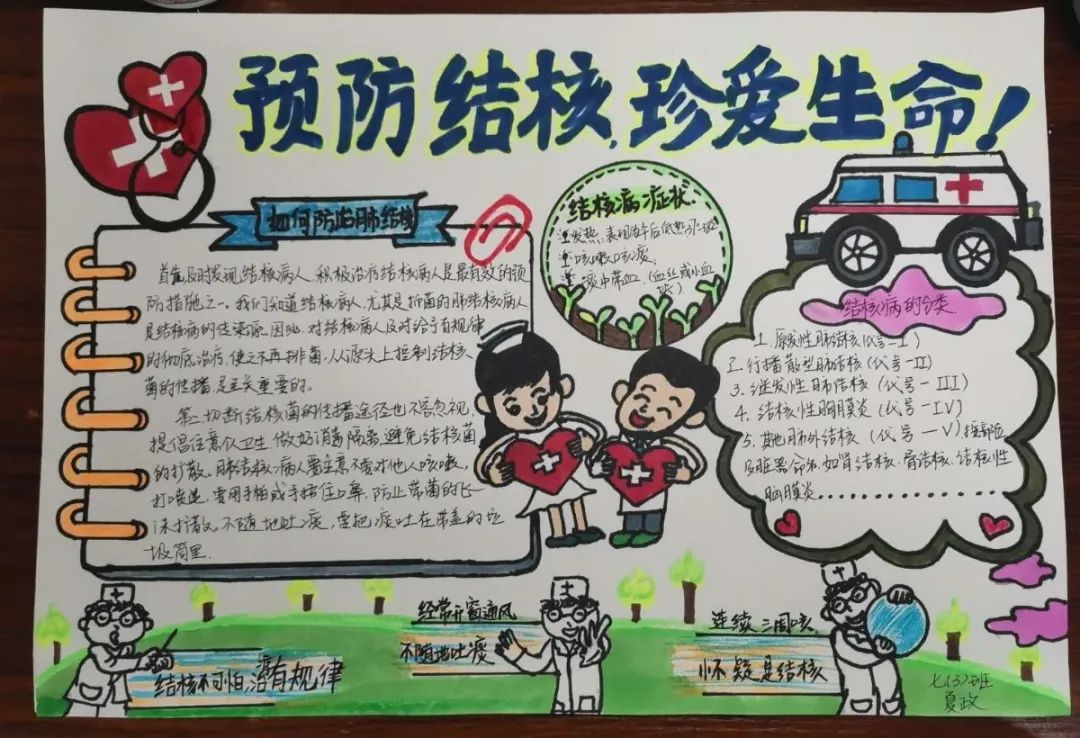 预防结核,珍爱生命!
如何防治肺结核
首先及时发现结核病人、积极治疗结核病人是最有效的预
防措施之一。我们知道结核病人,尤其是排菌的肺结核病人
是结核病的传染源.因此.对结核病人及时给予有规律
的彻底治疗,使之不再排菌,从源头上控制结核
菌的传播,是至关重要的。
第二,切断结核菌的传播途径也不容忽视,
提倡注意卫生.做好消毒隔离,避免结核菌
的扩散。肺结核病人要注意不要对他人咳嗽,
打喷嚏,要用手帕或手捂住口鼻,防止带菌的飞
沫扩散,不随地吐痰,要把痰吐在带盖的垃
圾筒里.
结核病症状.
发热:表现为午后低热
咳嗽咳痰,
痰中带血(血丝或小血
结核病的分类
1.原发性肺结核(代号-I)
2.行播散型肺结核(代号-II)
3.继发性肺结核(代号-III)
4.结核性胸膜炎(代号-IV)
5.其他肺外结核(代号-V)按部位
及脏器命名.如肾结核、骨结核、结核性
脑膜炎..................
结核不可怕治有规律
经常开窗通风
不随地吐痰
连续三周咳
怀疑是结核
七(3)班
夏政